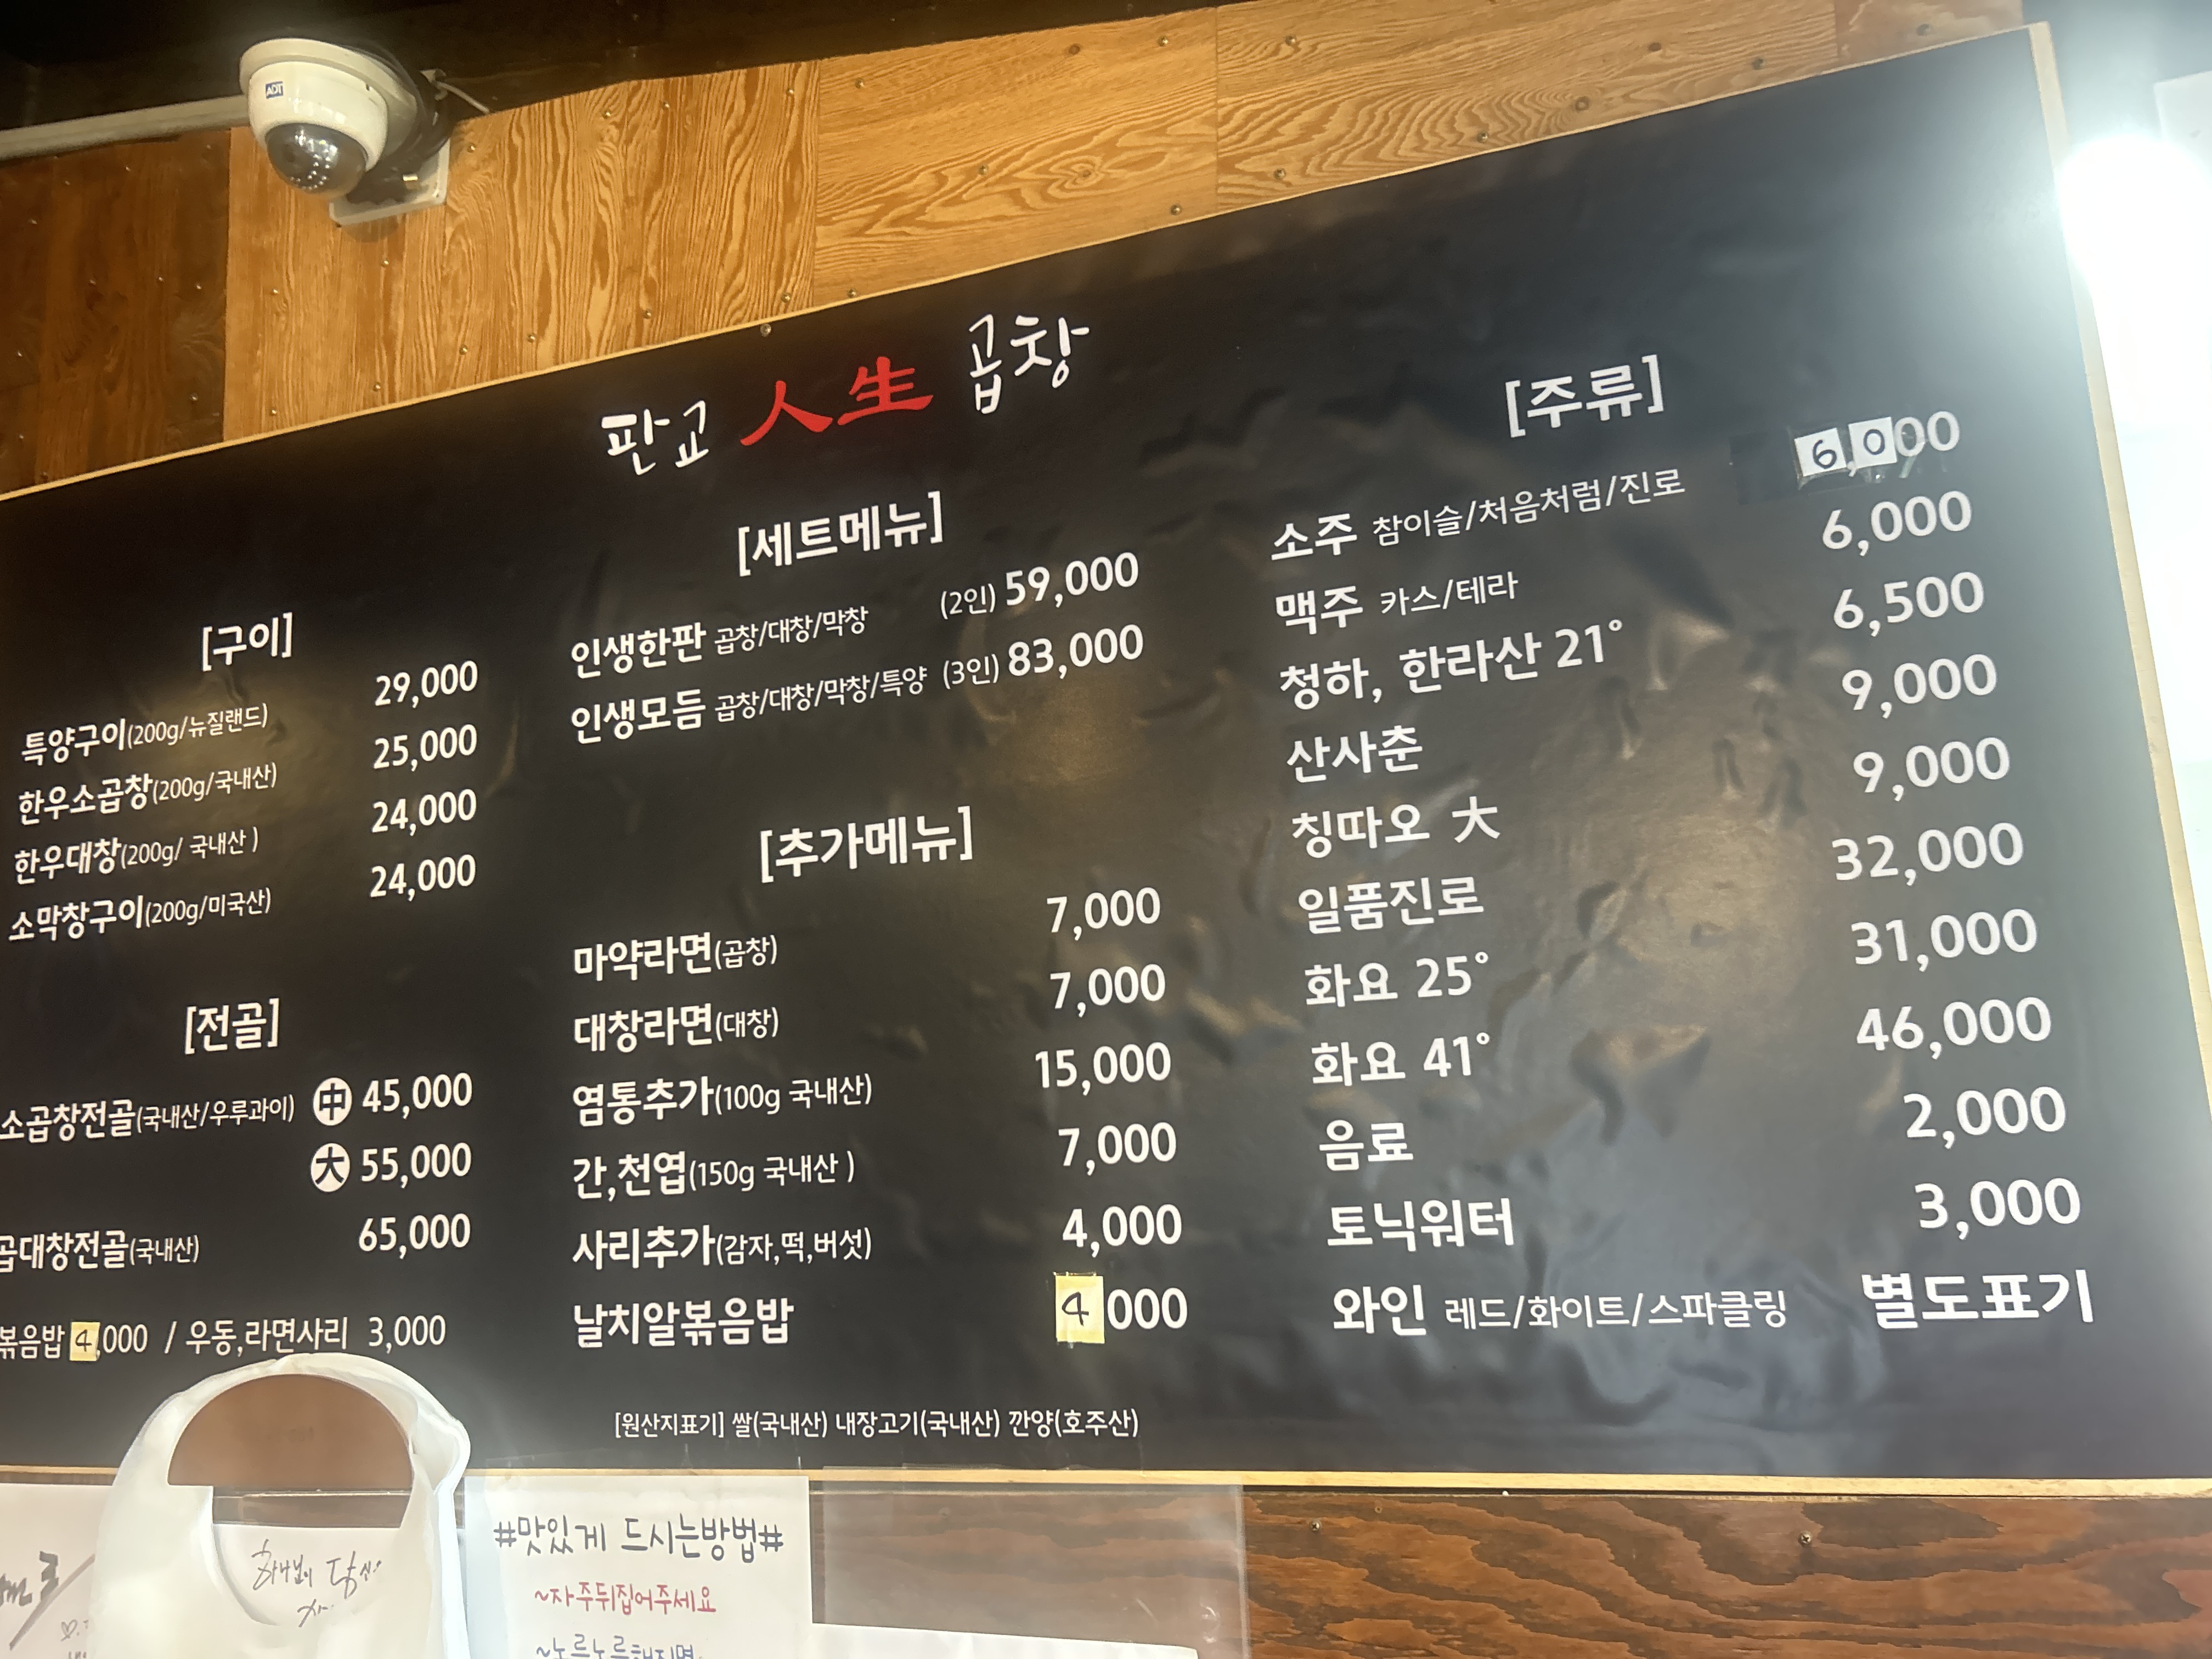 ADT
판교 人生 곱창
[구이]
특양구이(200g/뉴질랜드) 29,000
한우소곱창(200g/국내산) 25,000
한우대창(200g/ 국내산 ) 24,000
소막창구이(200g/미국산) 24,000
[전골]
소곱창전골(국내산/우루과이) 中 45,000
大 55,000
곱대창전골(국내산) 65,000
볶음밥 4,000 / 우동,라면사리 3,000
[세트메뉴]
인생한판 곱창/대창/막창 (2인) 59,000
인생모듬 곱창/대창/막창/특양 (3인) 83,000
[추가메뉴]
마약라면(곱창) 7,000
대창라면(대창) 7,000
염통추가(100g 국내산) 15,000
간,천엽(150g 국내산 ) 7,000
사리추가(감자,떡,버섯) 4,000
날치알볶음밥 4 000
[주류]
소주 참이슬/처음처럼/진로 6,000
맥주 카스/테라 6,000
청하, 한라산 21° 6,500
산사춘 9,000
칭따오 大 9,000
일품진로 32,000
화요 25° 31,000
화요 41° 46,000
음료 2,000
토닉워터 3,000
와인 레드/화이트/스파클링 별도표기
[원산지표기] 쌀(국내산) 내장고기(국내산) 깐양(호주산)
#맛있게 드시는방법#
~자주뒤집어주세요